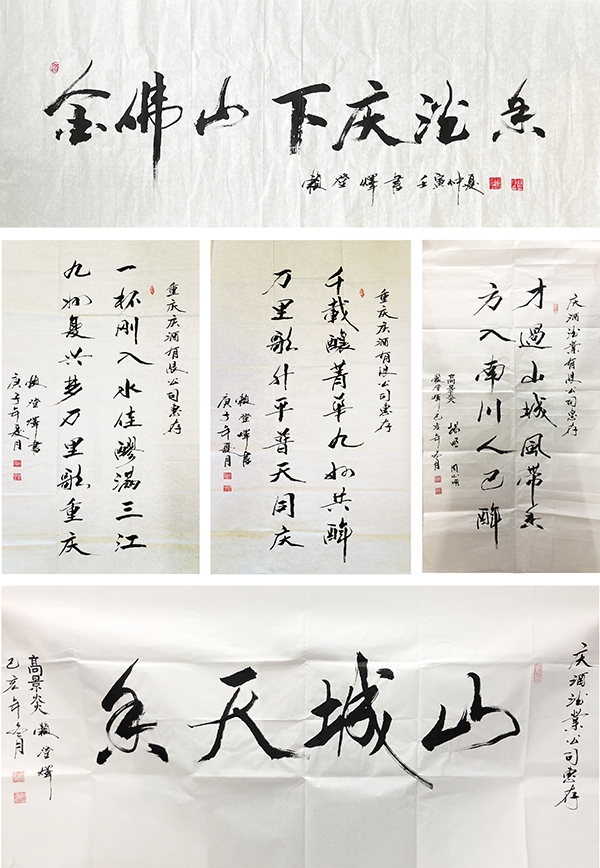 金佛山下庆酒香
赖登燡书 壬寅仲夏
重庆庆酒有限公司惠存
一杯刚入水佳醪满三江
九州复兴梦万里歌重庆
赖登燡书
庚子年夏月
重庆庆酒有限公司惠存
千载酿菁华九州共醉
万里歌升平普天同庆
赖登燡书
庚子年夏月
庆酒酒业有限公司惠存
才過山城風带香
方入南川人已醉
高景炎 杨明
赖登燡 己亥年冬月
庆酒酒業公司惠存
山城天香
高景炎 赖登燡
己亥年冬月